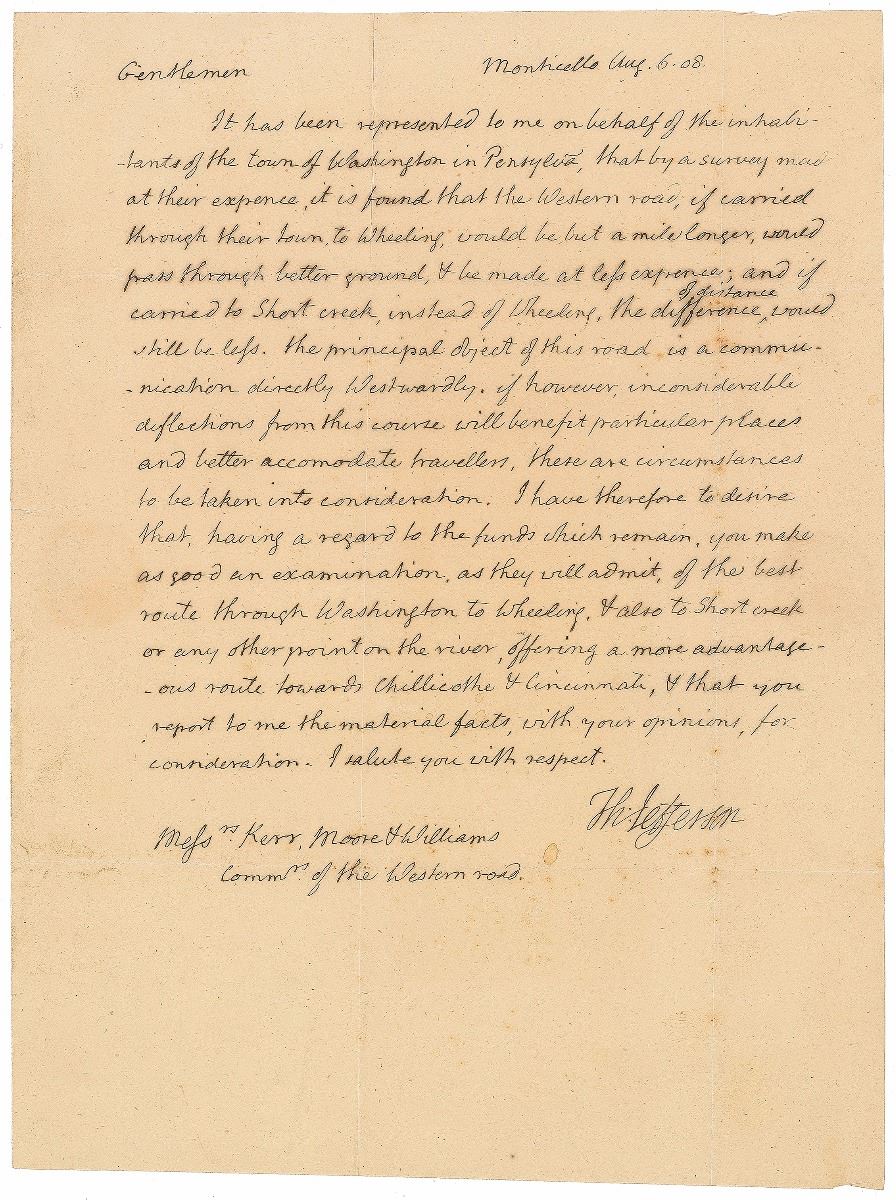 Gentlemen Monticello Aug. 6. 08.
It has been represented to me on behalf of the inhabi-
-tants of the town of Washington in Pensylva, that by a survey mad
at their expence, it is found that the Western road, if carried
through their town, to Wheeling, would be but a mile longer, would
pass through better ground, & be made at less expence; and if
of distance
carried to Short creek, instead of Wheeling, the difference, would
still be less. the principal object of this road is a commu-
-nication directly Westwardly. if however, inconsiderable
deflections from this course will benefit particular places
and better accomodate travellers, these are circumstances
to be taken into consideration. I have therefore to desire
that, having a regard to the funds which remain, you make
as good an examination, as they will admit, of the best
route through Washington to Wheeling, & also to Short creek
or any other point on the river, offering a more advantage-
-ous route towards Chillicothe & Cincinnati, & that you
report to me the material facts, with your opinions, for
consideration. I salute you with respect.
Th: Jefferson
Messrs Kerr, Moore & Williams
Commrs of the Western road.